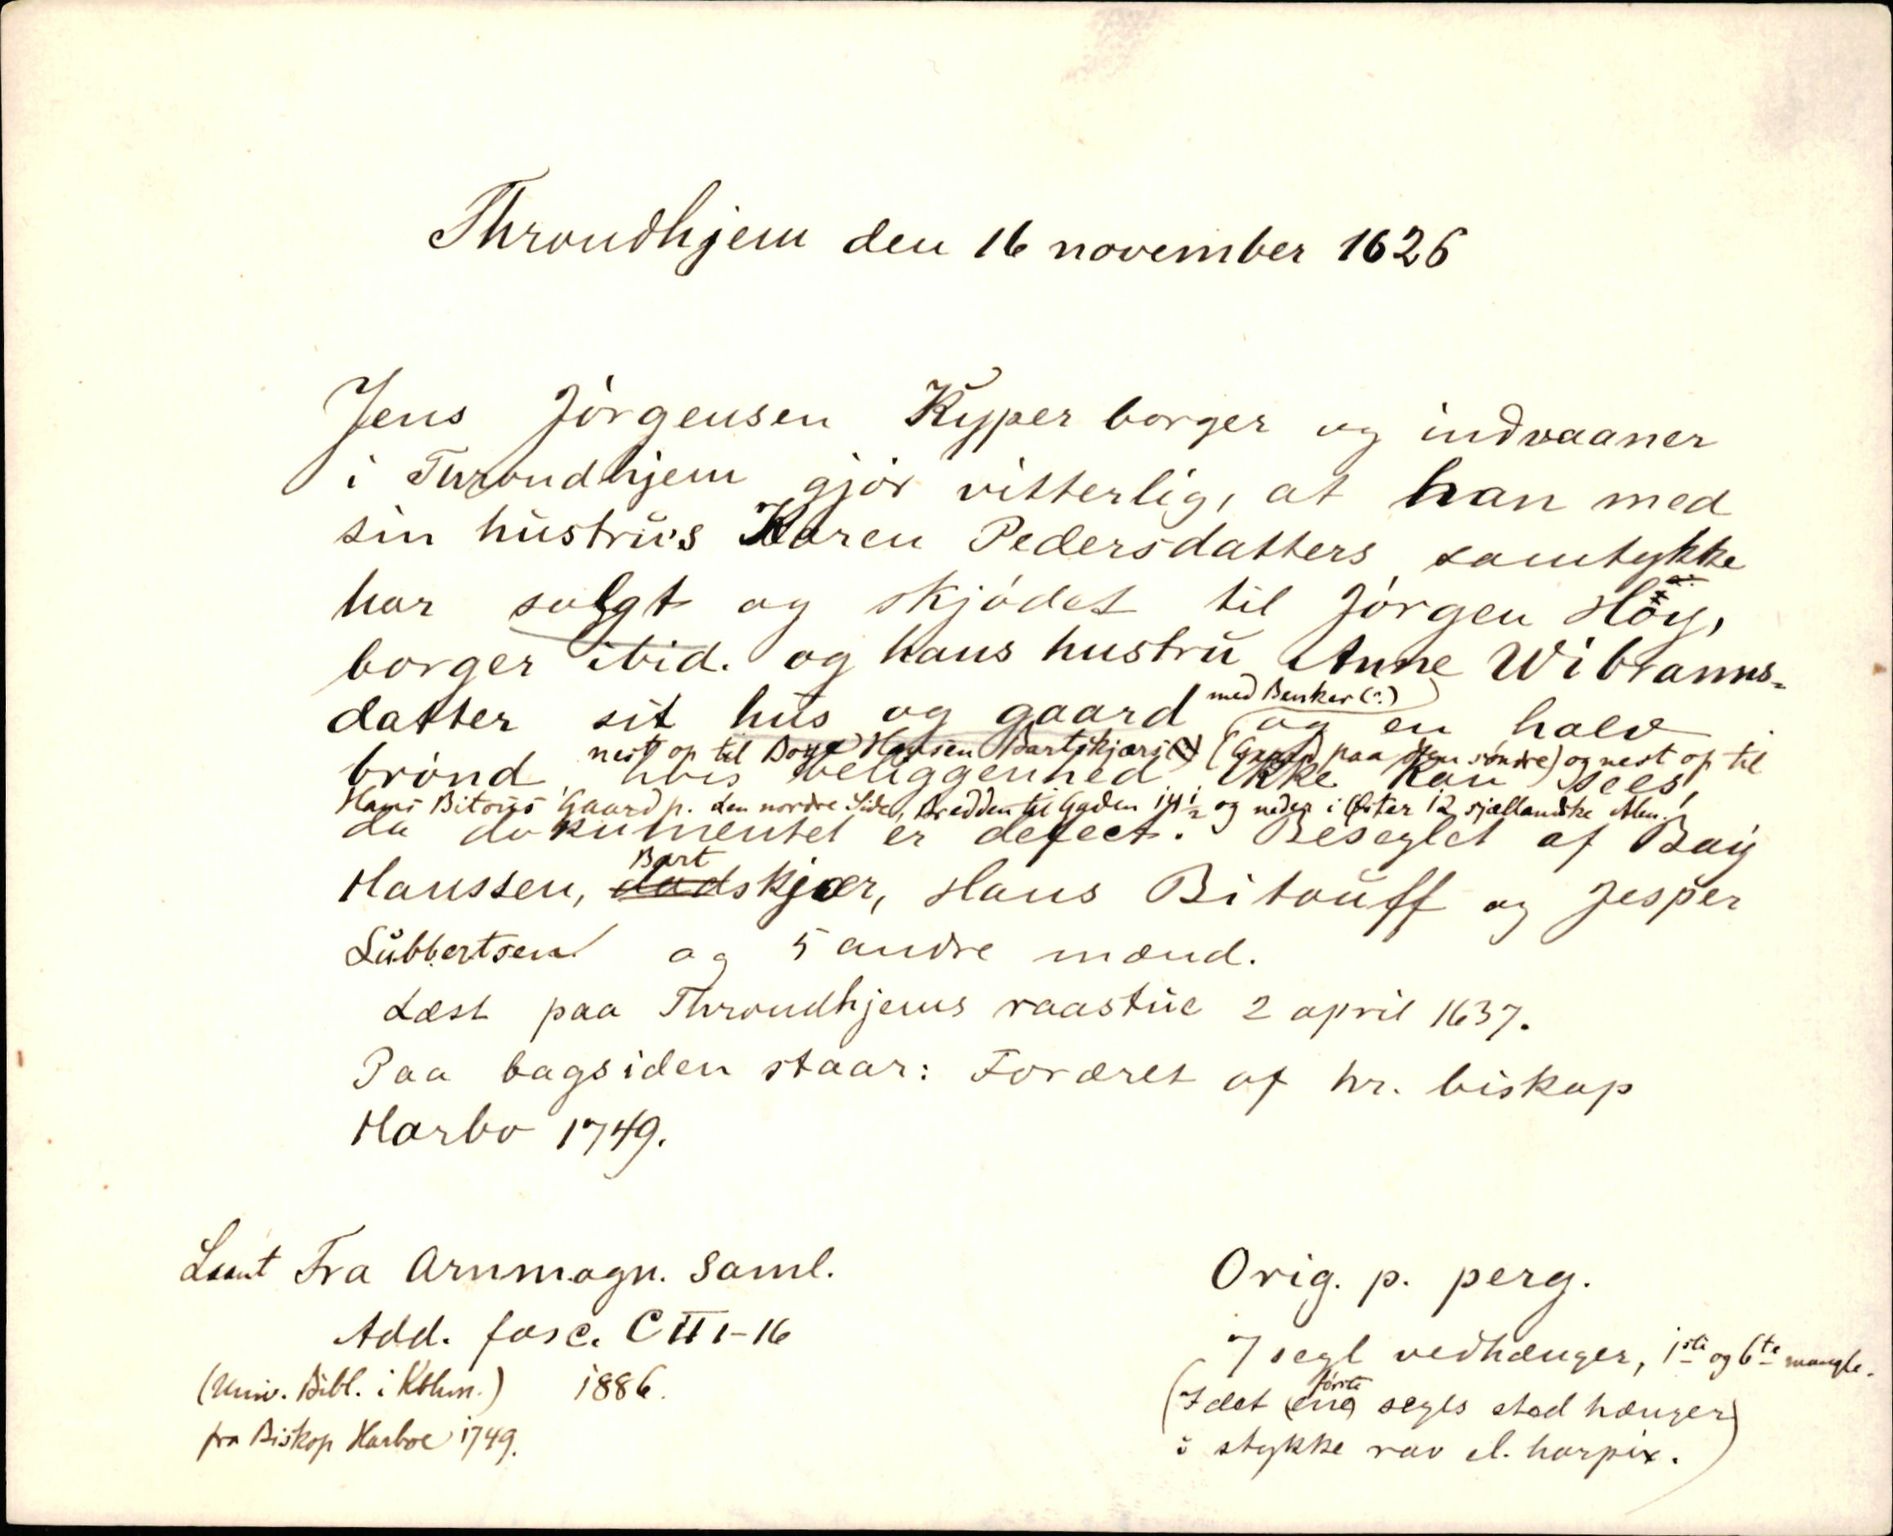 Throndhjem den 16 november 1626
Jens Jörgensen Kyper borger og indvaaner
i Throndhjem gjör vitterlig, at han med
sin hustrus Karen Pedersdatters samtykke
har solgt og skjödet til Jörgen Höy,
borger ibid. og hans hustru Anne Wibranns-
datter sit hus og gaard med Benker (?) og en halv
nest op til Boye Hansen Bartskjærs (Gaard paa den søndre) og nest op til
brönd hvis beliggenhed ikke kan sees,
Hans Bitous Gaard p. den nordre Side, Bredden til Gaden 14 1/2 og neder i Øster 12 sjællandske Alen.
da dokumentet er defect. Beseglet af Boÿ
Hanssen, Bartskjær, Hans Bitouff og Jesper
Lübbertsen og 5 andre mænd.
Læst paa Throndhjems raastue 2 april 1637.
Paa bagsiden staar: Foræret af hr. biskop
Harbo 1749.
Laant Fra Arnmagn. Saml.
Add. fasc. C II 1-16
(Univ. Bibl. i Kbhn.) 1886.
fra Biskop Harboe 1749.
Orig. p. perg.
7 segl vedhænger, 1ste og 6te mangle.
(I det første segls sted hænger
i stykke rav el. harpix.)